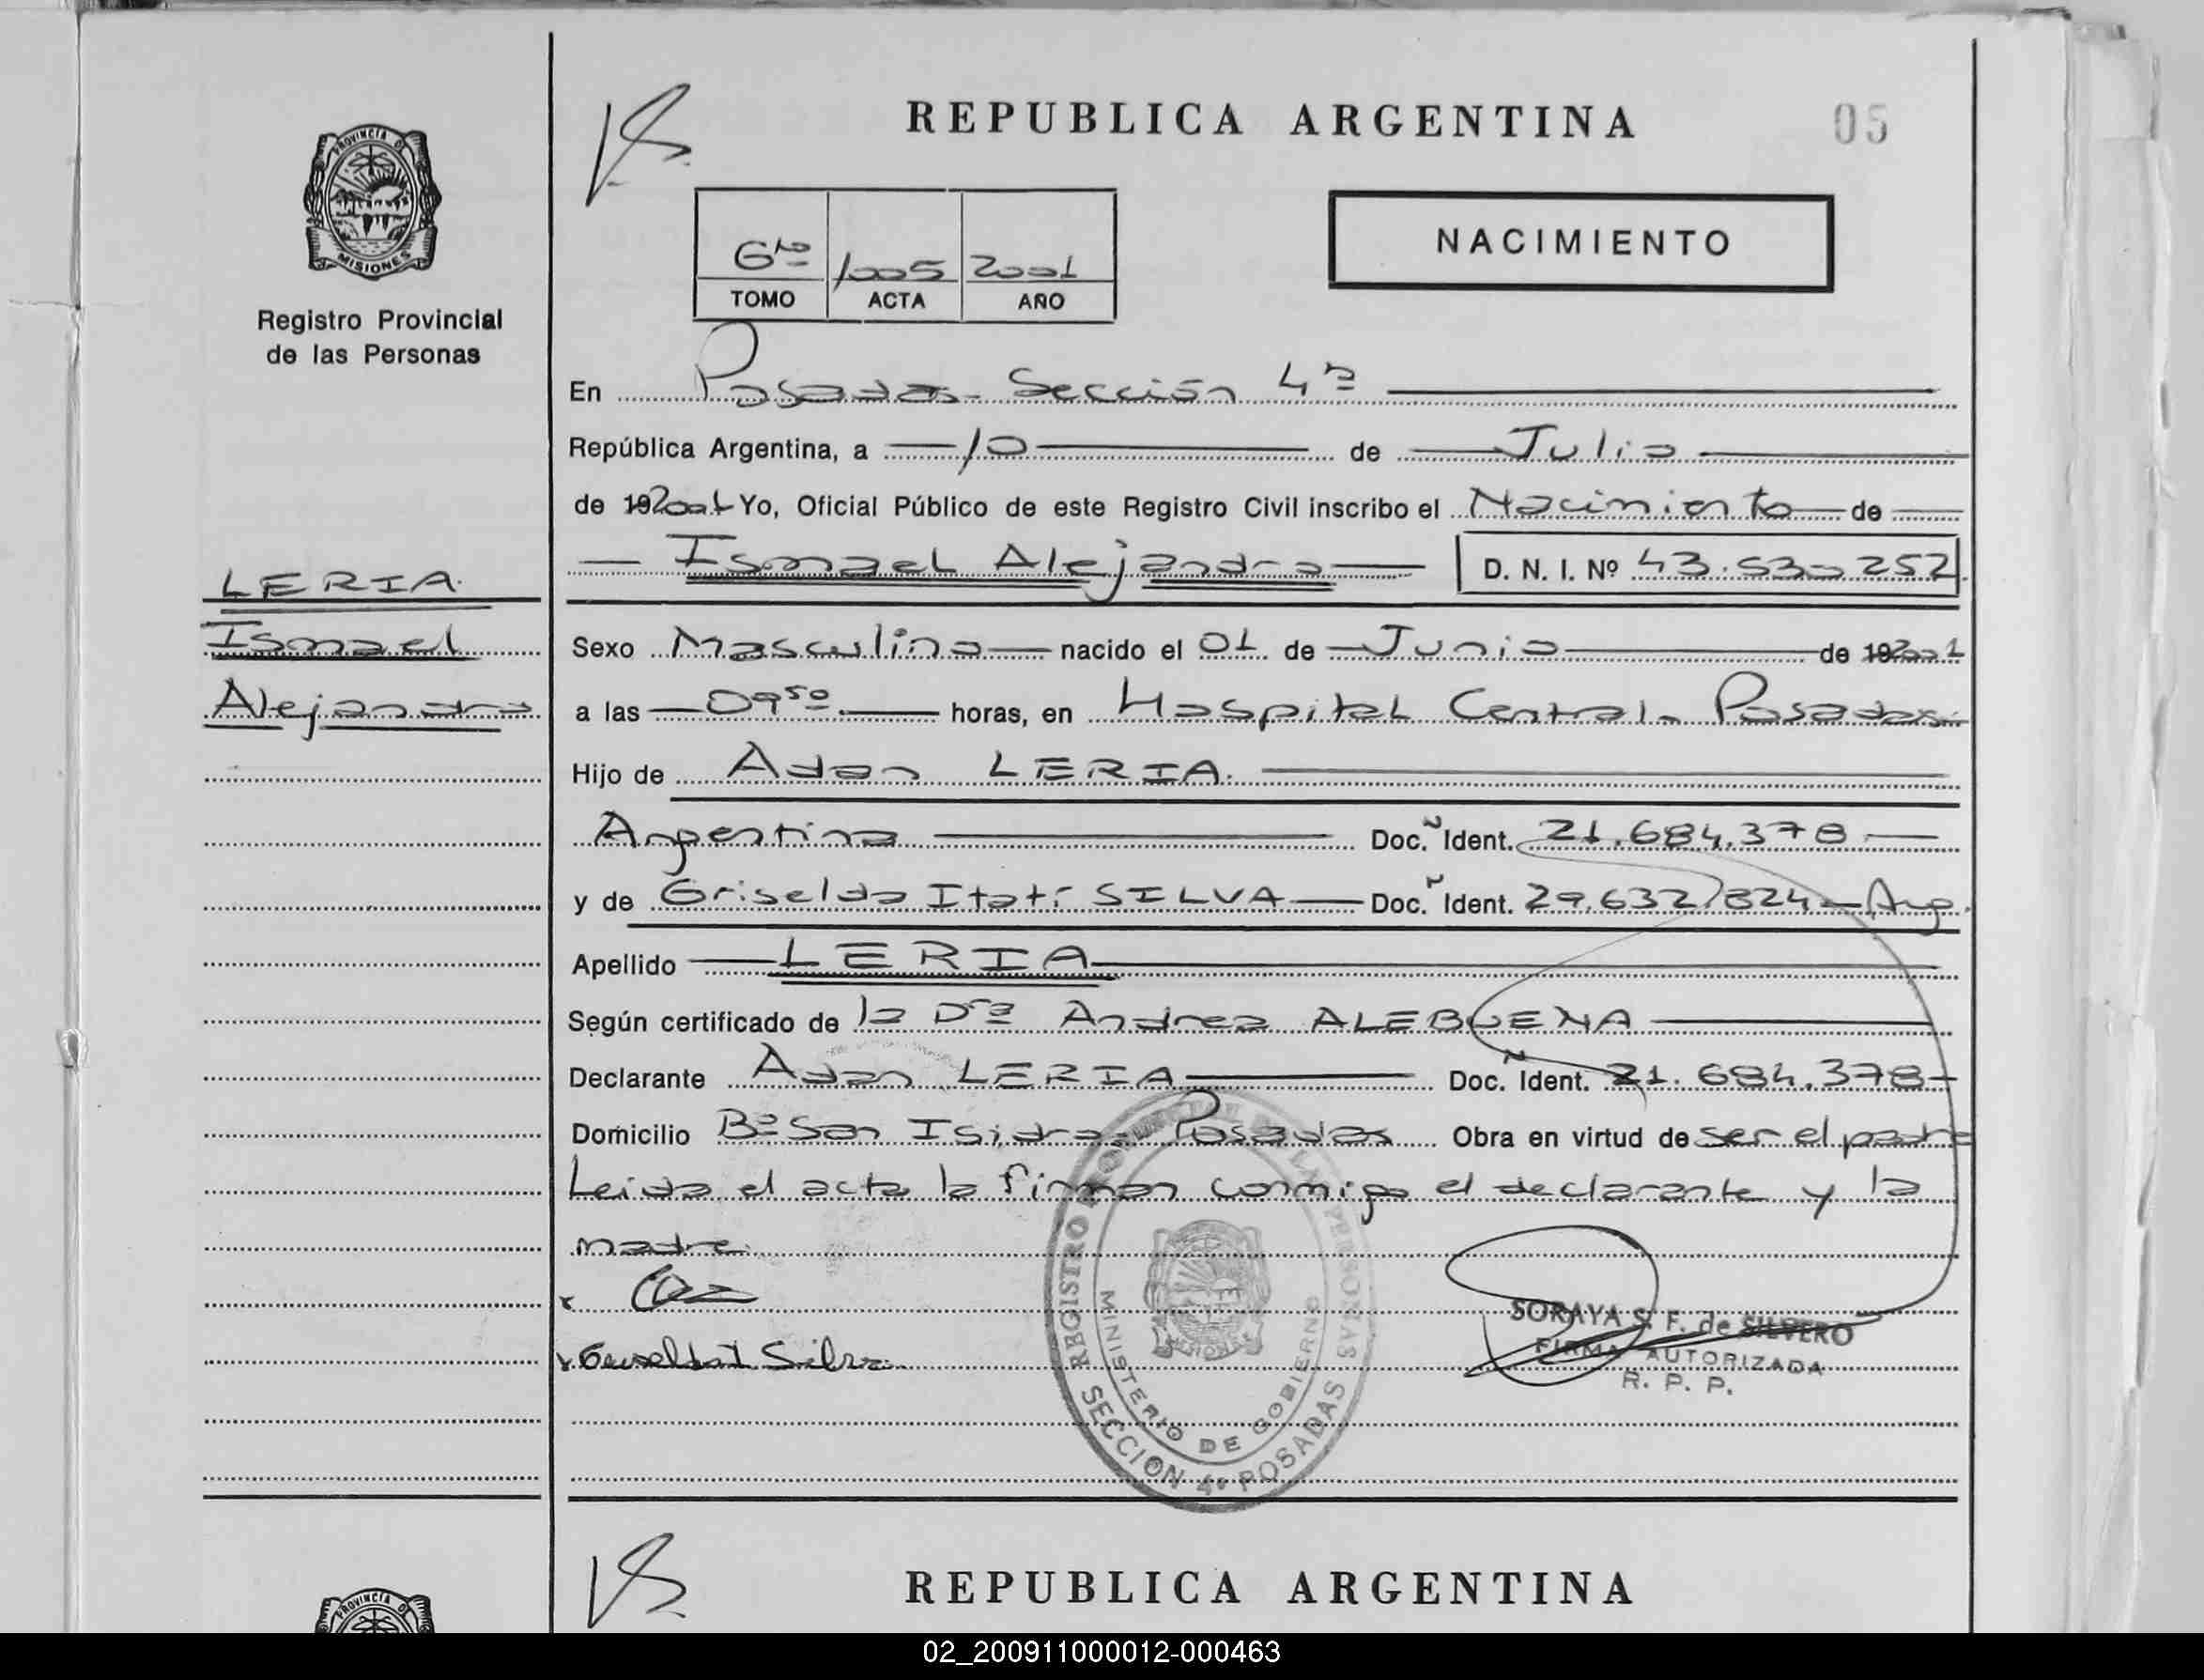 REPUBLICA ARGENTINA
05
PROVINCIA DE
MISIONES
Registro Provincial
de las Personas
6to 1005 2001
TOMO ACTA AÑO
NACIMIENTO
En Posadas - Sección 4ª
República Argentina, a 10 de Julio
de 192001 Yo, Oficial Público de este Registro Civil inscribo el Nacimiento de
Ismael Alejandro D. N. I. Nº 43.530252
LERIA
Ismael
Alejandro
Sexo Masculino nacido el 01 de Junio de 192001
a las 09 50 horas, en Hospital Central - Posadas
Hijo de Adan LERIA.
Argentina Doc. Ident. 21.684.378
y de Griselda Itatí SILVA Doc. Ident. 29.632.824 - Arg.
Apellido LERIA
Según certificado de la Dra Andrea ALEBUENA
Declarante Adan LERIA Doc. Ident. 21.684.378
Domicilio Bº San Isidro - Posadas Obra en virtud de ser el padre
Leida el acta la firman conmigo el declarante y la
madre.
x
x Griselda I Silva
SORAYA S. F. de SILVERO
FIRMA AUTORIZADA
R. P. P.
REGISTRO PROVINCIAL DE LAS PERSONAS
MINISTERIO DE GOBIERNO
SECCION 4ª POSADAS
REPUBLICA ARGENTINA
PROVINCIA DE
02_200911000012-000463